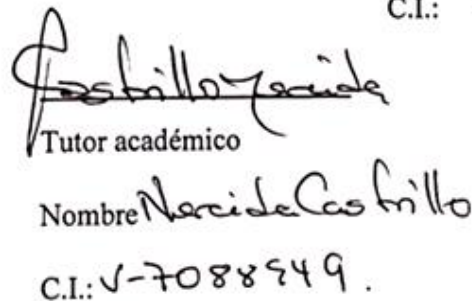 C.I.:
Castrillo
Tutor académico
Nombre Nereida Castrillo
C.I.: V-7088949.